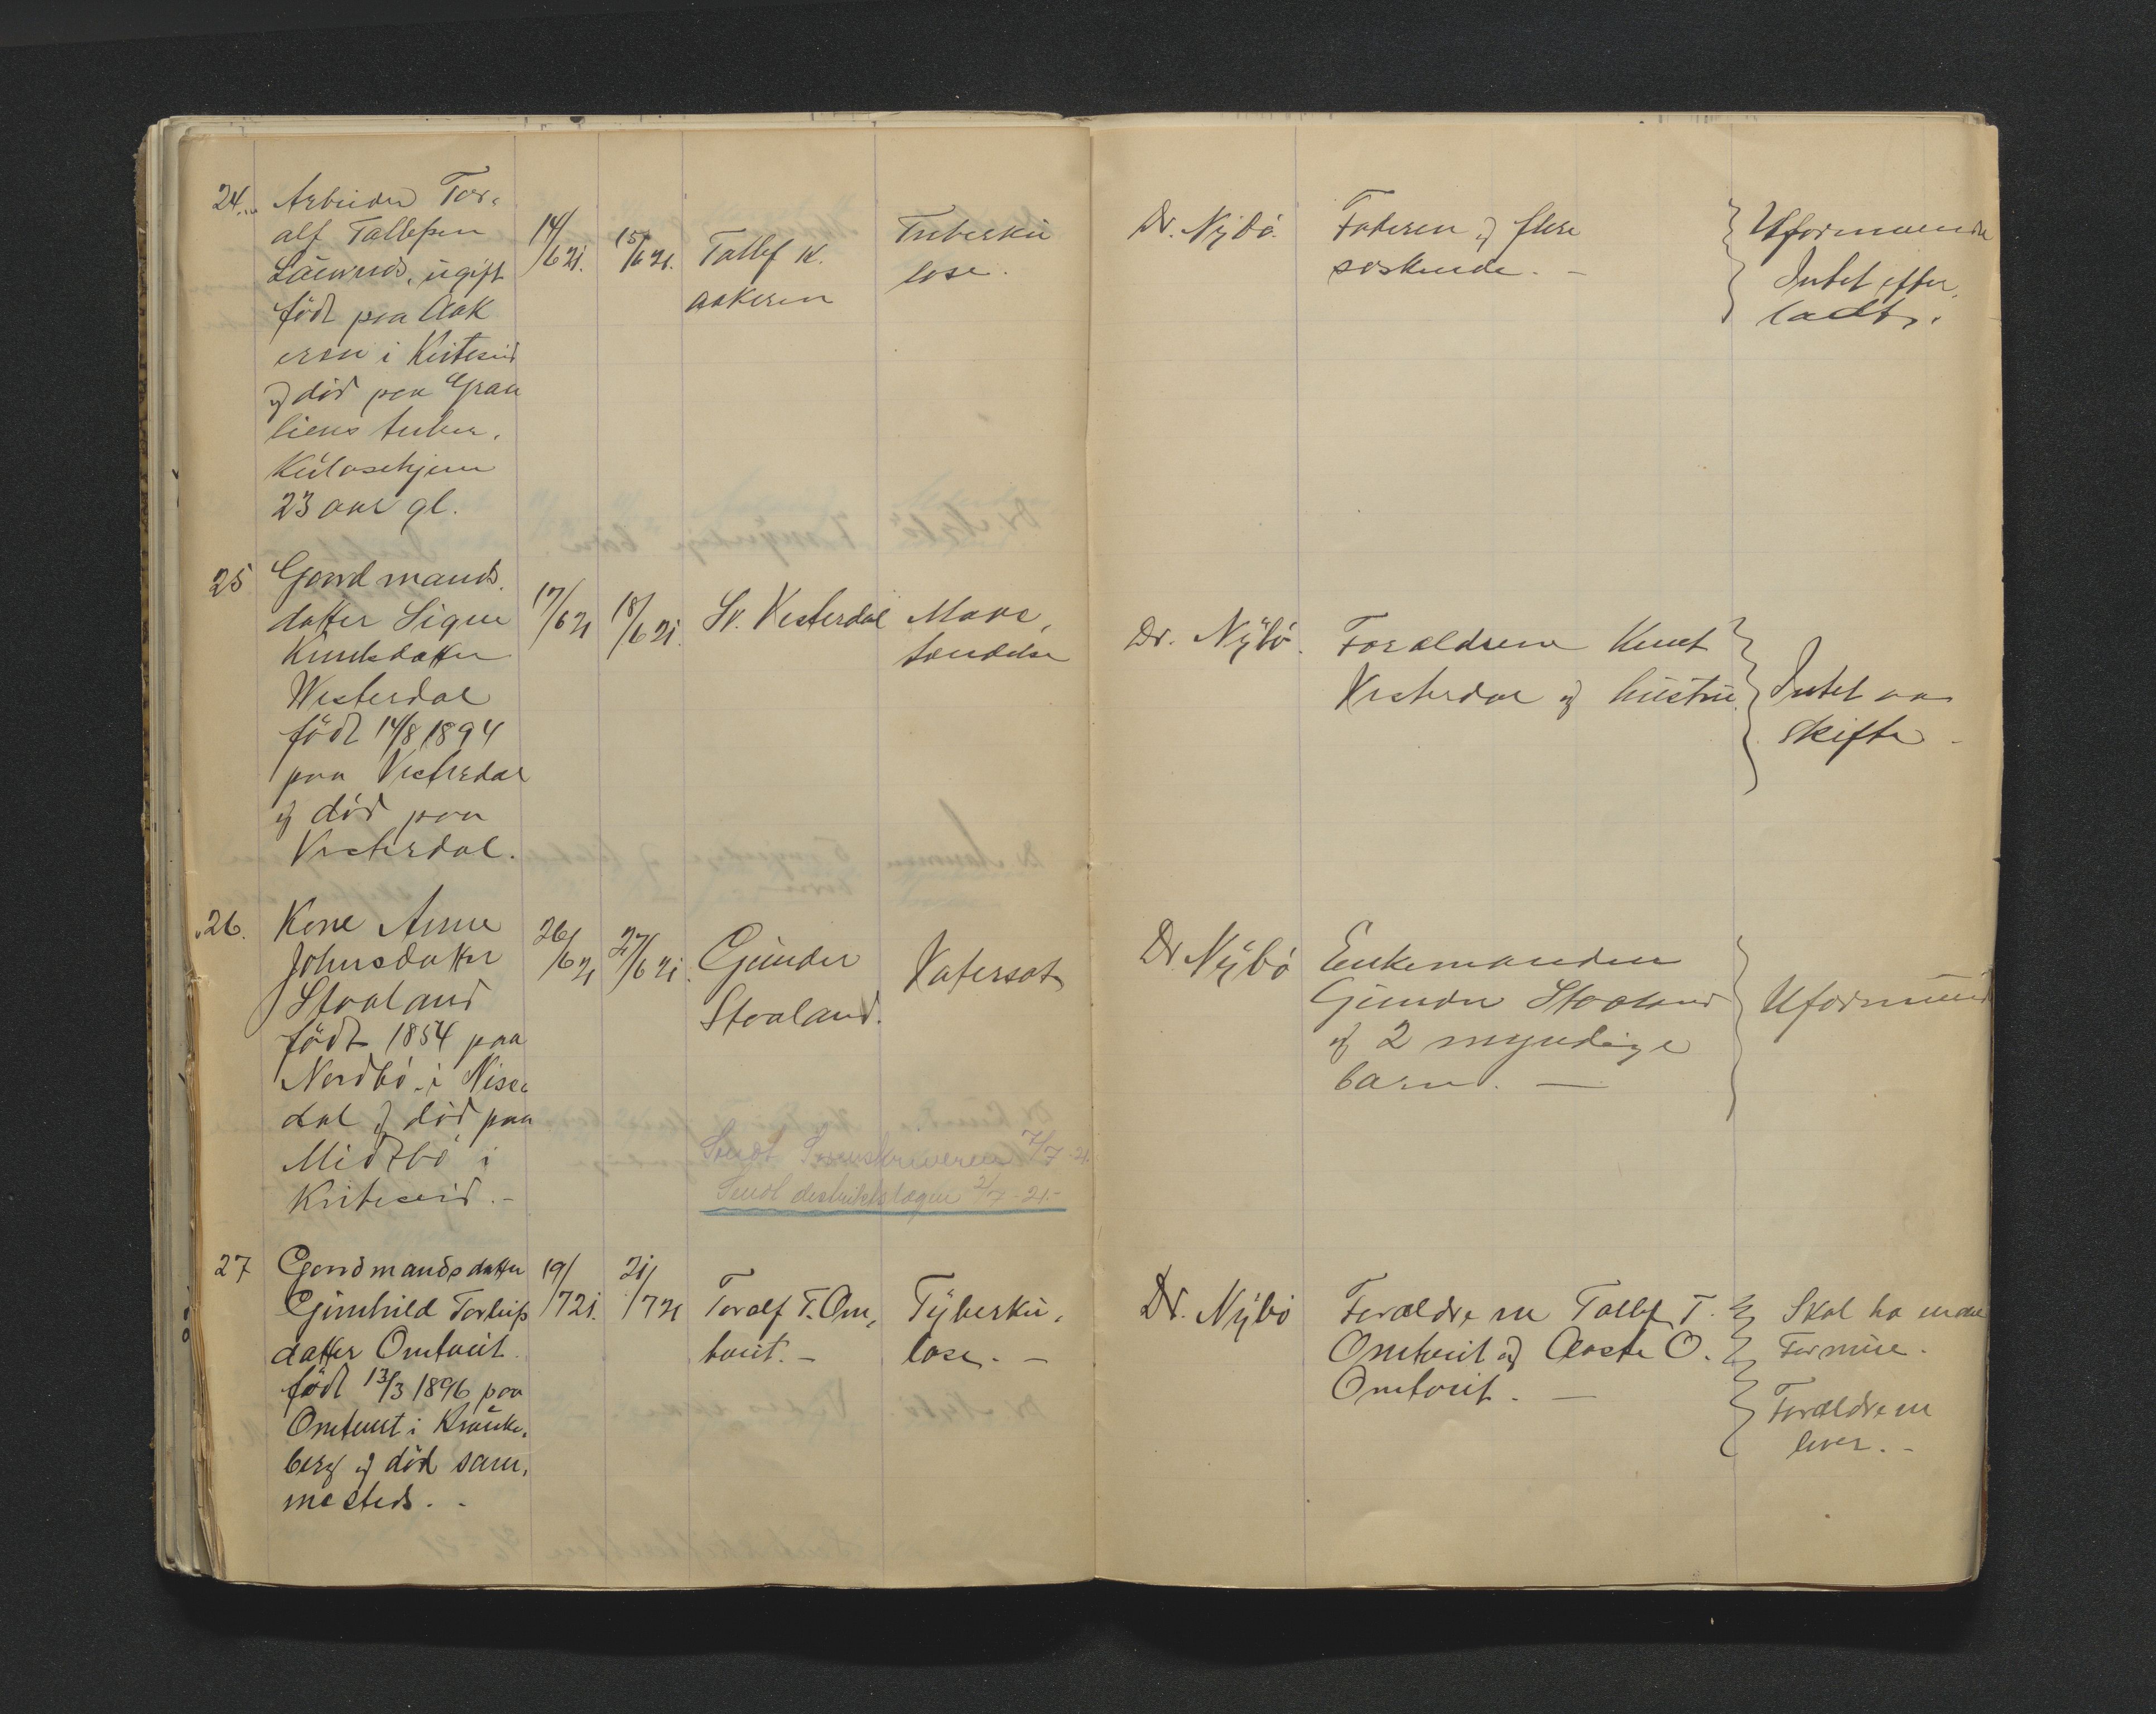 24.
Arbeider Tor-
alf Tallefsen
ugift
födt paa Aak
eren i Kviteseid
og död paa Gran
liens tuber.
Kulosehjem
23 aar gl.
14/6 21.
15/6 21.
Tallef K.
Aakeren
Tuberku
lose.
Dr. Nybö.
Faderen og flere
söskende. -
Uformuende
Intet efter
ladt.
25
Gaardmands
datter Signe
Knutsdatter
Westerdal
födt 14/8 1894
paa Vesterdal
og död paa
Vesterdal.
17/6 21
18/6 21.
Sv. Vesterdal
Mave,
betændelse
Dr. Nybö.
Forældrene Knut
Vesterdal og hustru
Intet aa
skifte -
26.
Kone Anne
Johnsdatter
Staaland
födt 1854 paa
Nordbö i Nisse
dal og död paa
Midtbö i
Kviteseid. -
26/6 21
27/6 21.
Gunder
Staaland.
Vatersot
Dr Nybö
Enkemanden
Gunder Staaland
og 2 myndige
barn. -
Uformuend
Sendt Sorenskriveren 7/7 21.
Sendt distriktslægen 2/7 - 21. -
27
Gaardmandsdatter
Gunhild Torleifs
datter Omtveit.
födt 13/3 1896 paa
Omtveit i Kråke,
berg og död sam,
mesteds. -
19/7 21.
21/7 21
Toralf T. Om,
tveit. -
Tyberku,
lose. -
Dr. Nybö
Forældrene Tallef T.
Omtveit og Aaste O.
Omtveit. -
Skal ha endel
Formue.
Forældrene
lever. -